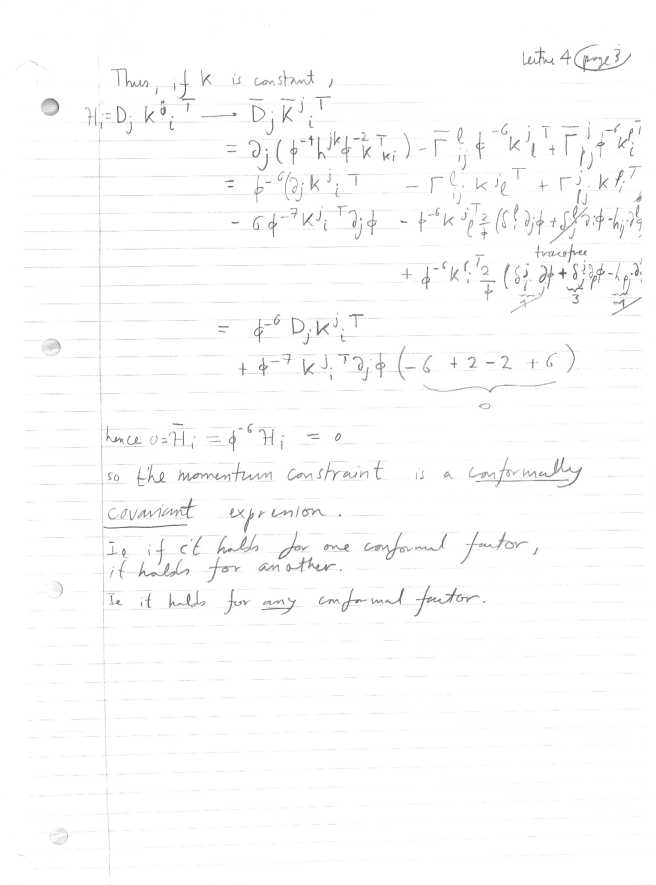 Lecture 4 page 3
Thus, if K is constant,
H_i = D_j K^j_i^T → D̄_j K̄^j_i^T
= ∂_j (φ^-4 h^jk φ^-2 K^T_ki) - Γ̄^l_ij φ^-6 K^j_l^T + Γ̄^j_lj φ^-6 K^l_i^T
= φ^-6 (∂_j K^j_i^T - Γ^l_ij K^j_l^T + Γ^j_lj K^l_i^T
- 6 φ^-7 K^j_i^T ∂_j φ - φ^-6 K^j_l^T 2/φ (δ^l_i ∂_j φ + δ^l_j ∂_i φ - h_ij ∂^l φ
tracefree
+ φ^-6 K^l_i^T 2/φ (δ^j_j ∂_l φ + δ^j_l ∂_j φ - h_lj ∂^j
3
= φ^-6 D_j K^j_i^T
+ φ^-7 K^j_i^T ∂_j φ (-6 + 2 - 2 + 6)
0
hence 0 = H̄_i = φ^-6 H_i = 0
so the momentum constraint is a conformally
covariant expression.
Ie if it holds for one conformal factor,
it holds for another.
Ie it holds for any conformal factor.